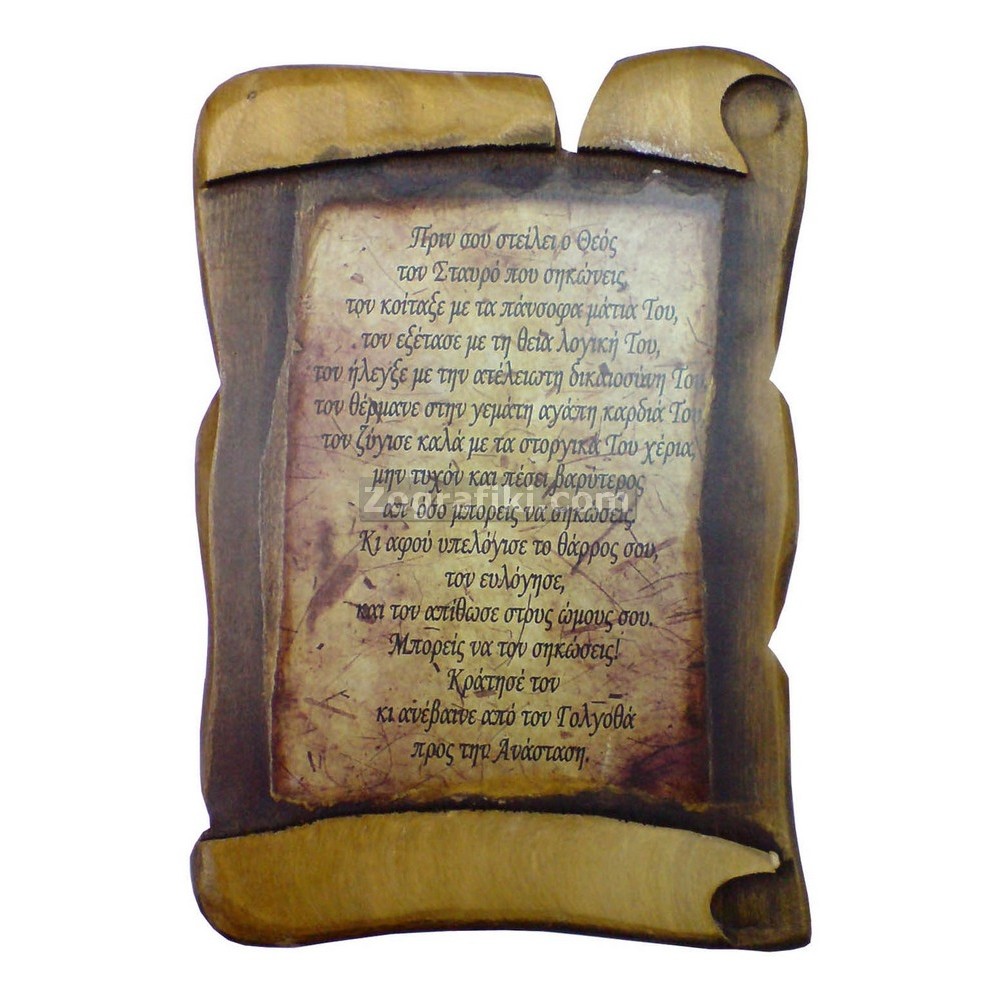 Πριν σου στείλει ο Θεός
τον Σταυρό που σηκώνεις,
τον κοίταξε με τα πάνσοφα μάτια Του,
τον εξέτασε με τη θεία λογική Του,
τον ήλεγξε με την ατέλειωτη δικαιοσύνη Του,
τον θέρμανε στην γεμάτη αγάπη καρδιά Του,
τον ζύγισε καλά με τα στοργικά Του χέρια,
μην τυχόν και πέσει βαρύτερος
Zografiki.com
απ' όσο μπορείς να σηκώσεις.
Κι αφού υπελόγισε το θάρρος σου,
τον ευλόγησε,
και τον απίθωσε στους ώμους σου.
Μπορείς να τον σηκώσεις!
Κράτησέ τον
κι ανέβαινε από τον Γολγοθά
προς την Ανάσταση.